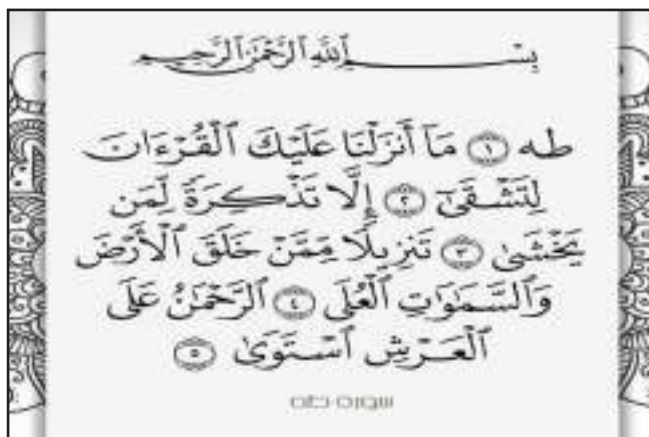 بِسْمِ ٱللَّهِ ٱلرَّحْمَٰنِ ٱلرَّحِيمِ
طه ١ مَآ أَنزَلْنَا عَلَيْكَ ٱلْقُرْءَانَ
لِتَشْقَىٰٓ ٢ إِلَّا تَذْكِرَةً لِّمَن
يَخْشَىٰ ٣ تَنزِيلًا مِّمَّنْ خَلَقَ ٱلْأَرْضَ
وَٱلسَّمَٰوَٰتِ ٱلْعُلَى ٤ ٱلرَّحْمَٰنُ عَلَى
ٱلْعَرْشِ ٱسْتَوَىٰ ٥
سورة طه